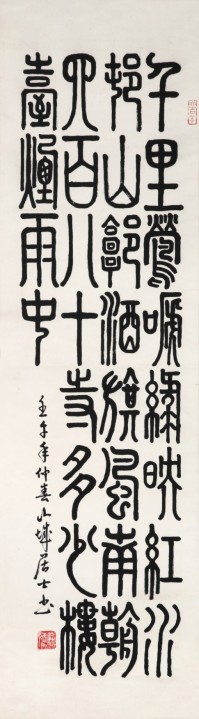 千里鶯嗁綠映紅水
邨山郭酒旗風南朝
四百八十寺多少樓
臺煙雨中
壬午年仲春山城居士书